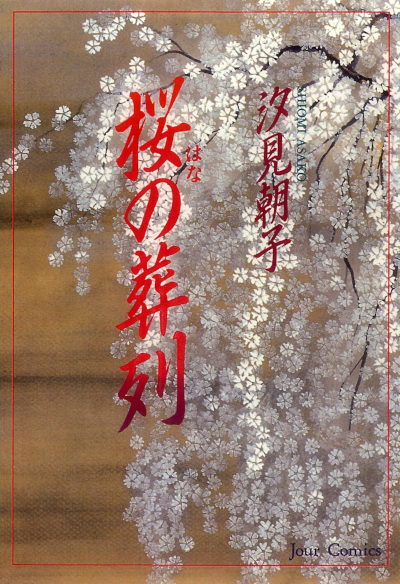 桜の葬列
はな
汐見朝子
SHIOMI ASAKO
Jour Comics